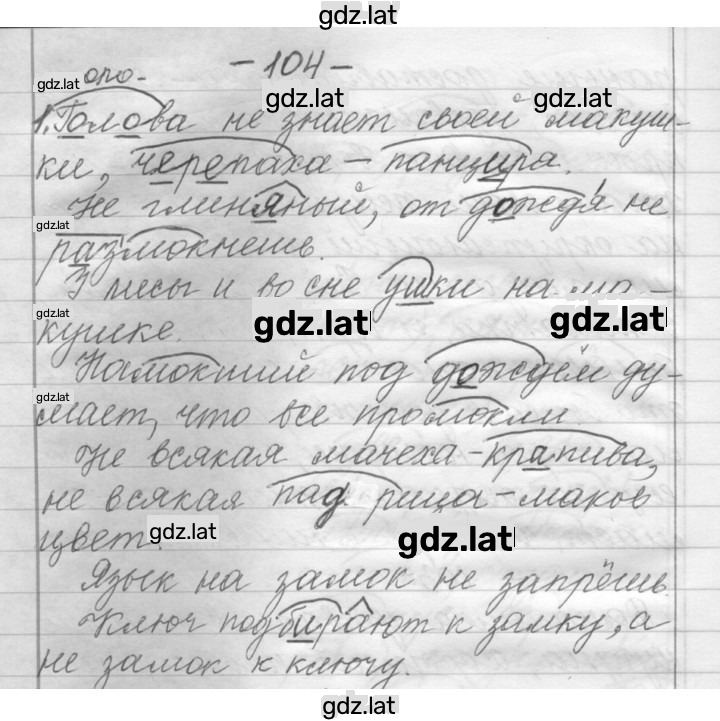 gdz.lat
- 104 -
gdz.lat оло-
gdz.lat gdz.lat
1. Голова не знает своей макуш-
ки, черепаха - панциря.
Не глиняный, от дождя не
gdz.lat
размокнешь.
У лисы и во сне ушки на ма-
gdz.lat gdz.lat gdz.lat
кушке.
Намокший под дождём ду-
gdz.lat
мает, что все промокли
Не всякая мачеха - крапива,
не всякая пад рица - маков
gdz.lat gdz.lat
цвет.
Язык на замок не запрёшь.
Ключ подбирают к замку, а
не замок к ключу.
gdz.lat